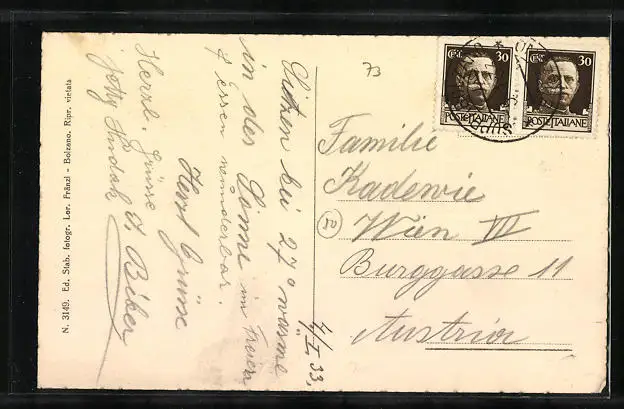 N. 3149. Ed. Stab. fotogr. Lor. Fränzl - Bolzano. Ripr. vietata
Sitzen bei 27° wärme
in der Sonne im Freien
& essen wunderbar.
Herzl. Grüsse
Herzl. Grüsse
J. Biber
4/I. 33.
73
CENT. 30
POSTE ITALIANE
CENT. 30
POSTE ITALIANE
Familie
Kadewie
Wien VII
Burggasse 11
Austria